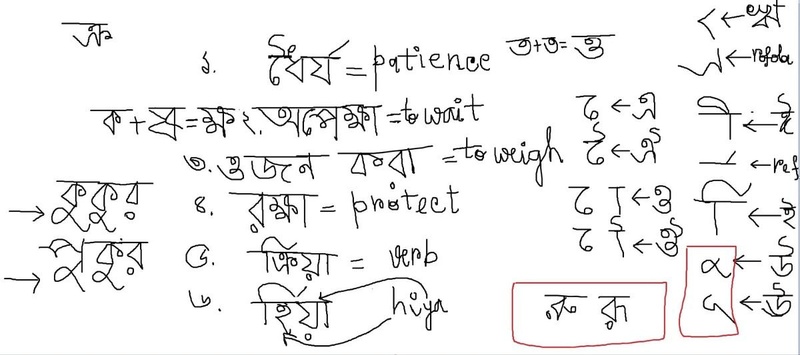 ১. ধৈর্য = patience ত+ত=ত্ত
ক+ষ=ক্ষ ২. অপেক্ষা = to wait
৩. ওজন করা = to weigh
→ কুকুর ৪. রক্ষা = protect
→ পুকুর ৫. ক্রিয়া = verb
৬. হিয়া hiya
ে ← এ
ৈ ← ঐ
ে া ← ও
ে ৗ ← ঔ
রু রূ
ী ← ঈ
← ref
ি ← ই
ু ← উ
ূ ← ঊ